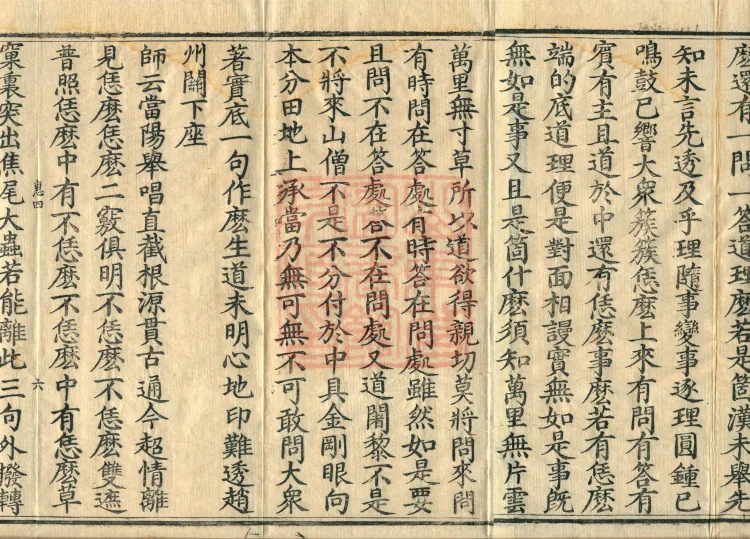 麽還有一問一答道理麽若是箇漢未舉先
知未言先透及乎理隨事變事逐理圓鍾已
鳴鼓已響大衆簇簇恁麽上來有問有答有
賓有主且道於中還有恁麽事麽若有恁麽
端的底道理便是對面相謾實無如是事既
無如是事又且是箇什麽須知萬里無片雲
萬里無寸草所以道欲得親切莫將問來問
有時問在答處有時答在問處雖然如是要
且問不在答處答不在問處又道闍黎不是
不將來山僧不是不分付於中具金剛眼向
本分田地上承當乃無可無不可敢問大衆
著實底一句作麽生道未明心地印難透趙
州關下座
師云當陽舉唱直截根源貫古通今超情離
見恁麽恁麽二竅俱明不恁麽不恁麽雙遮
普照恁麽中有不恁麽不恁麽中有恁麽草
惠四
六
窠裏突出焦尾大蟲若能離此三句外撥轉